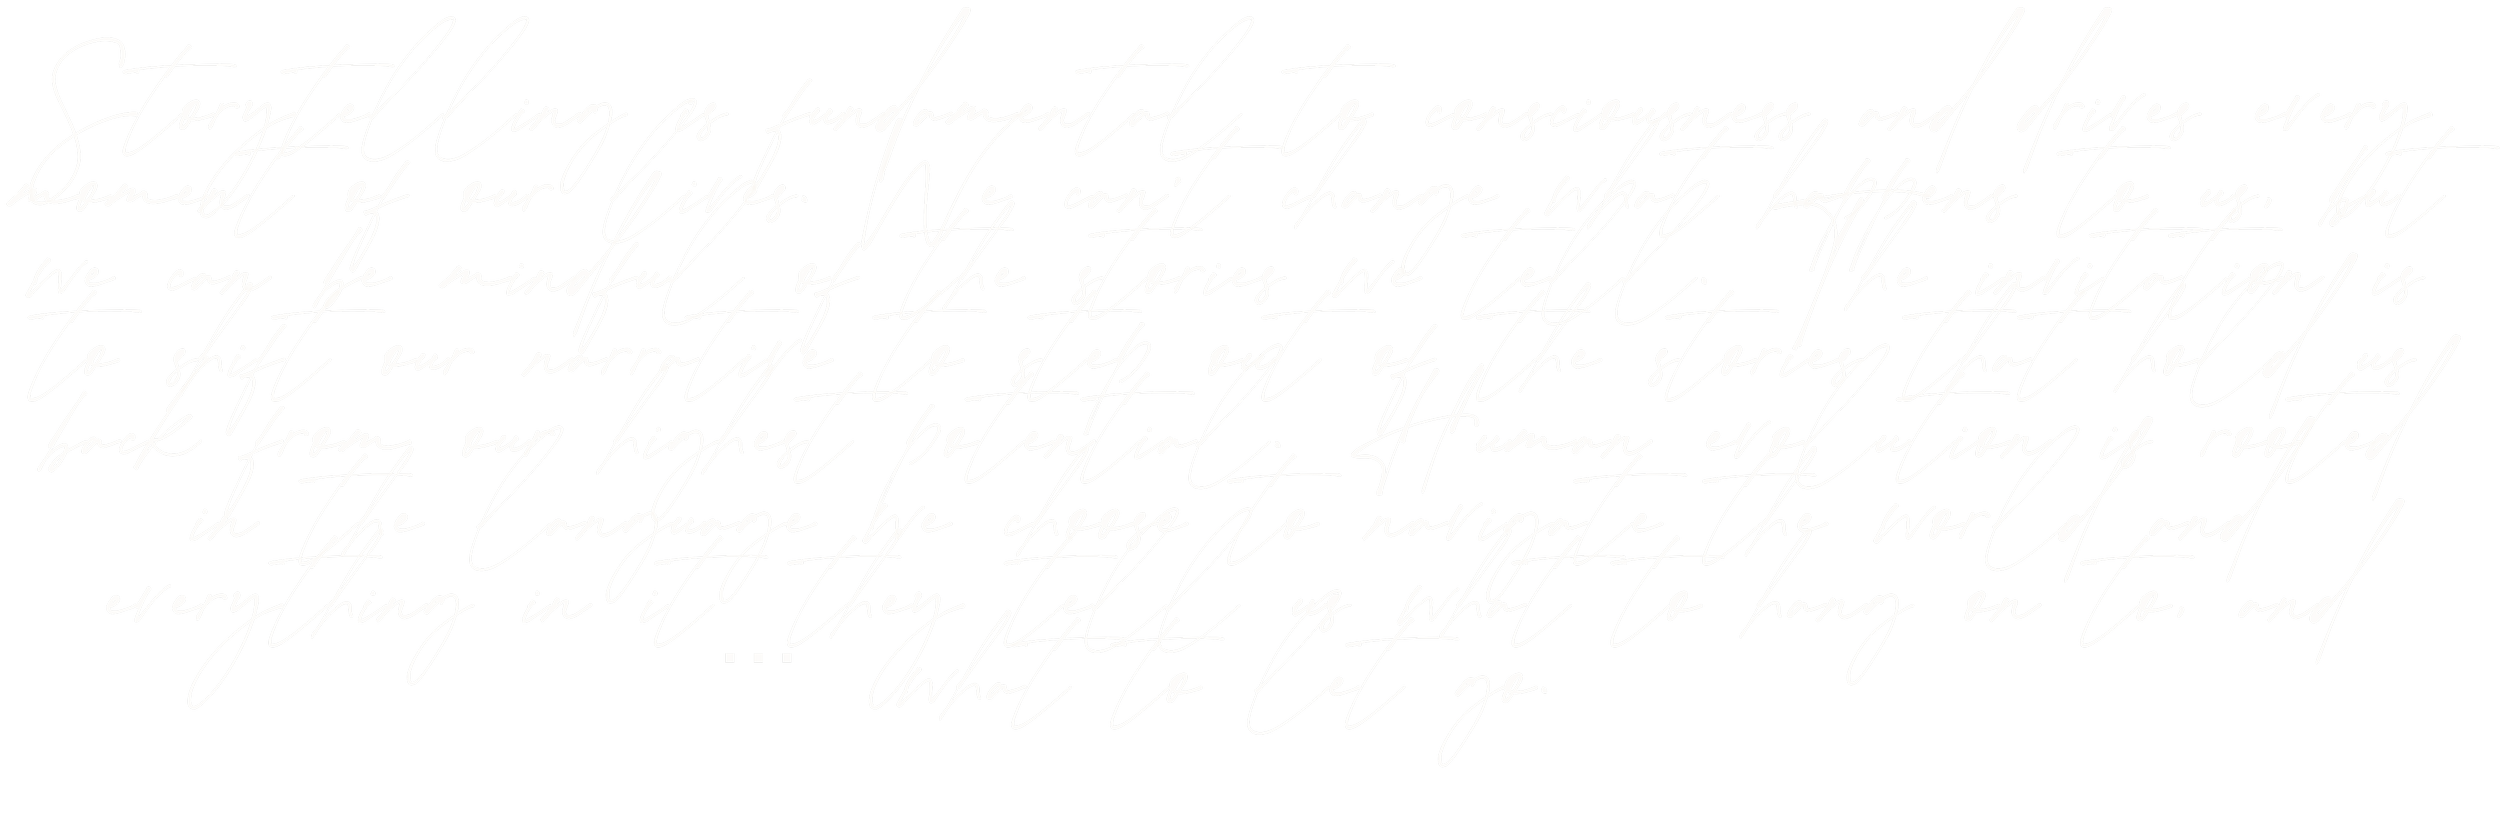 Storytelling is fundamental to consciousness and drives every
moment of our lifes. We can't change what happens to us, but
we can be mindful of the stories we tell. The invitation is
to shift our narrative to step out of the stories that hold us
back from our highest potential. Human evolution if rooted
in the language we choose to navigate the world and
everything in it they tell us what to hang on to, and
... What to let go.